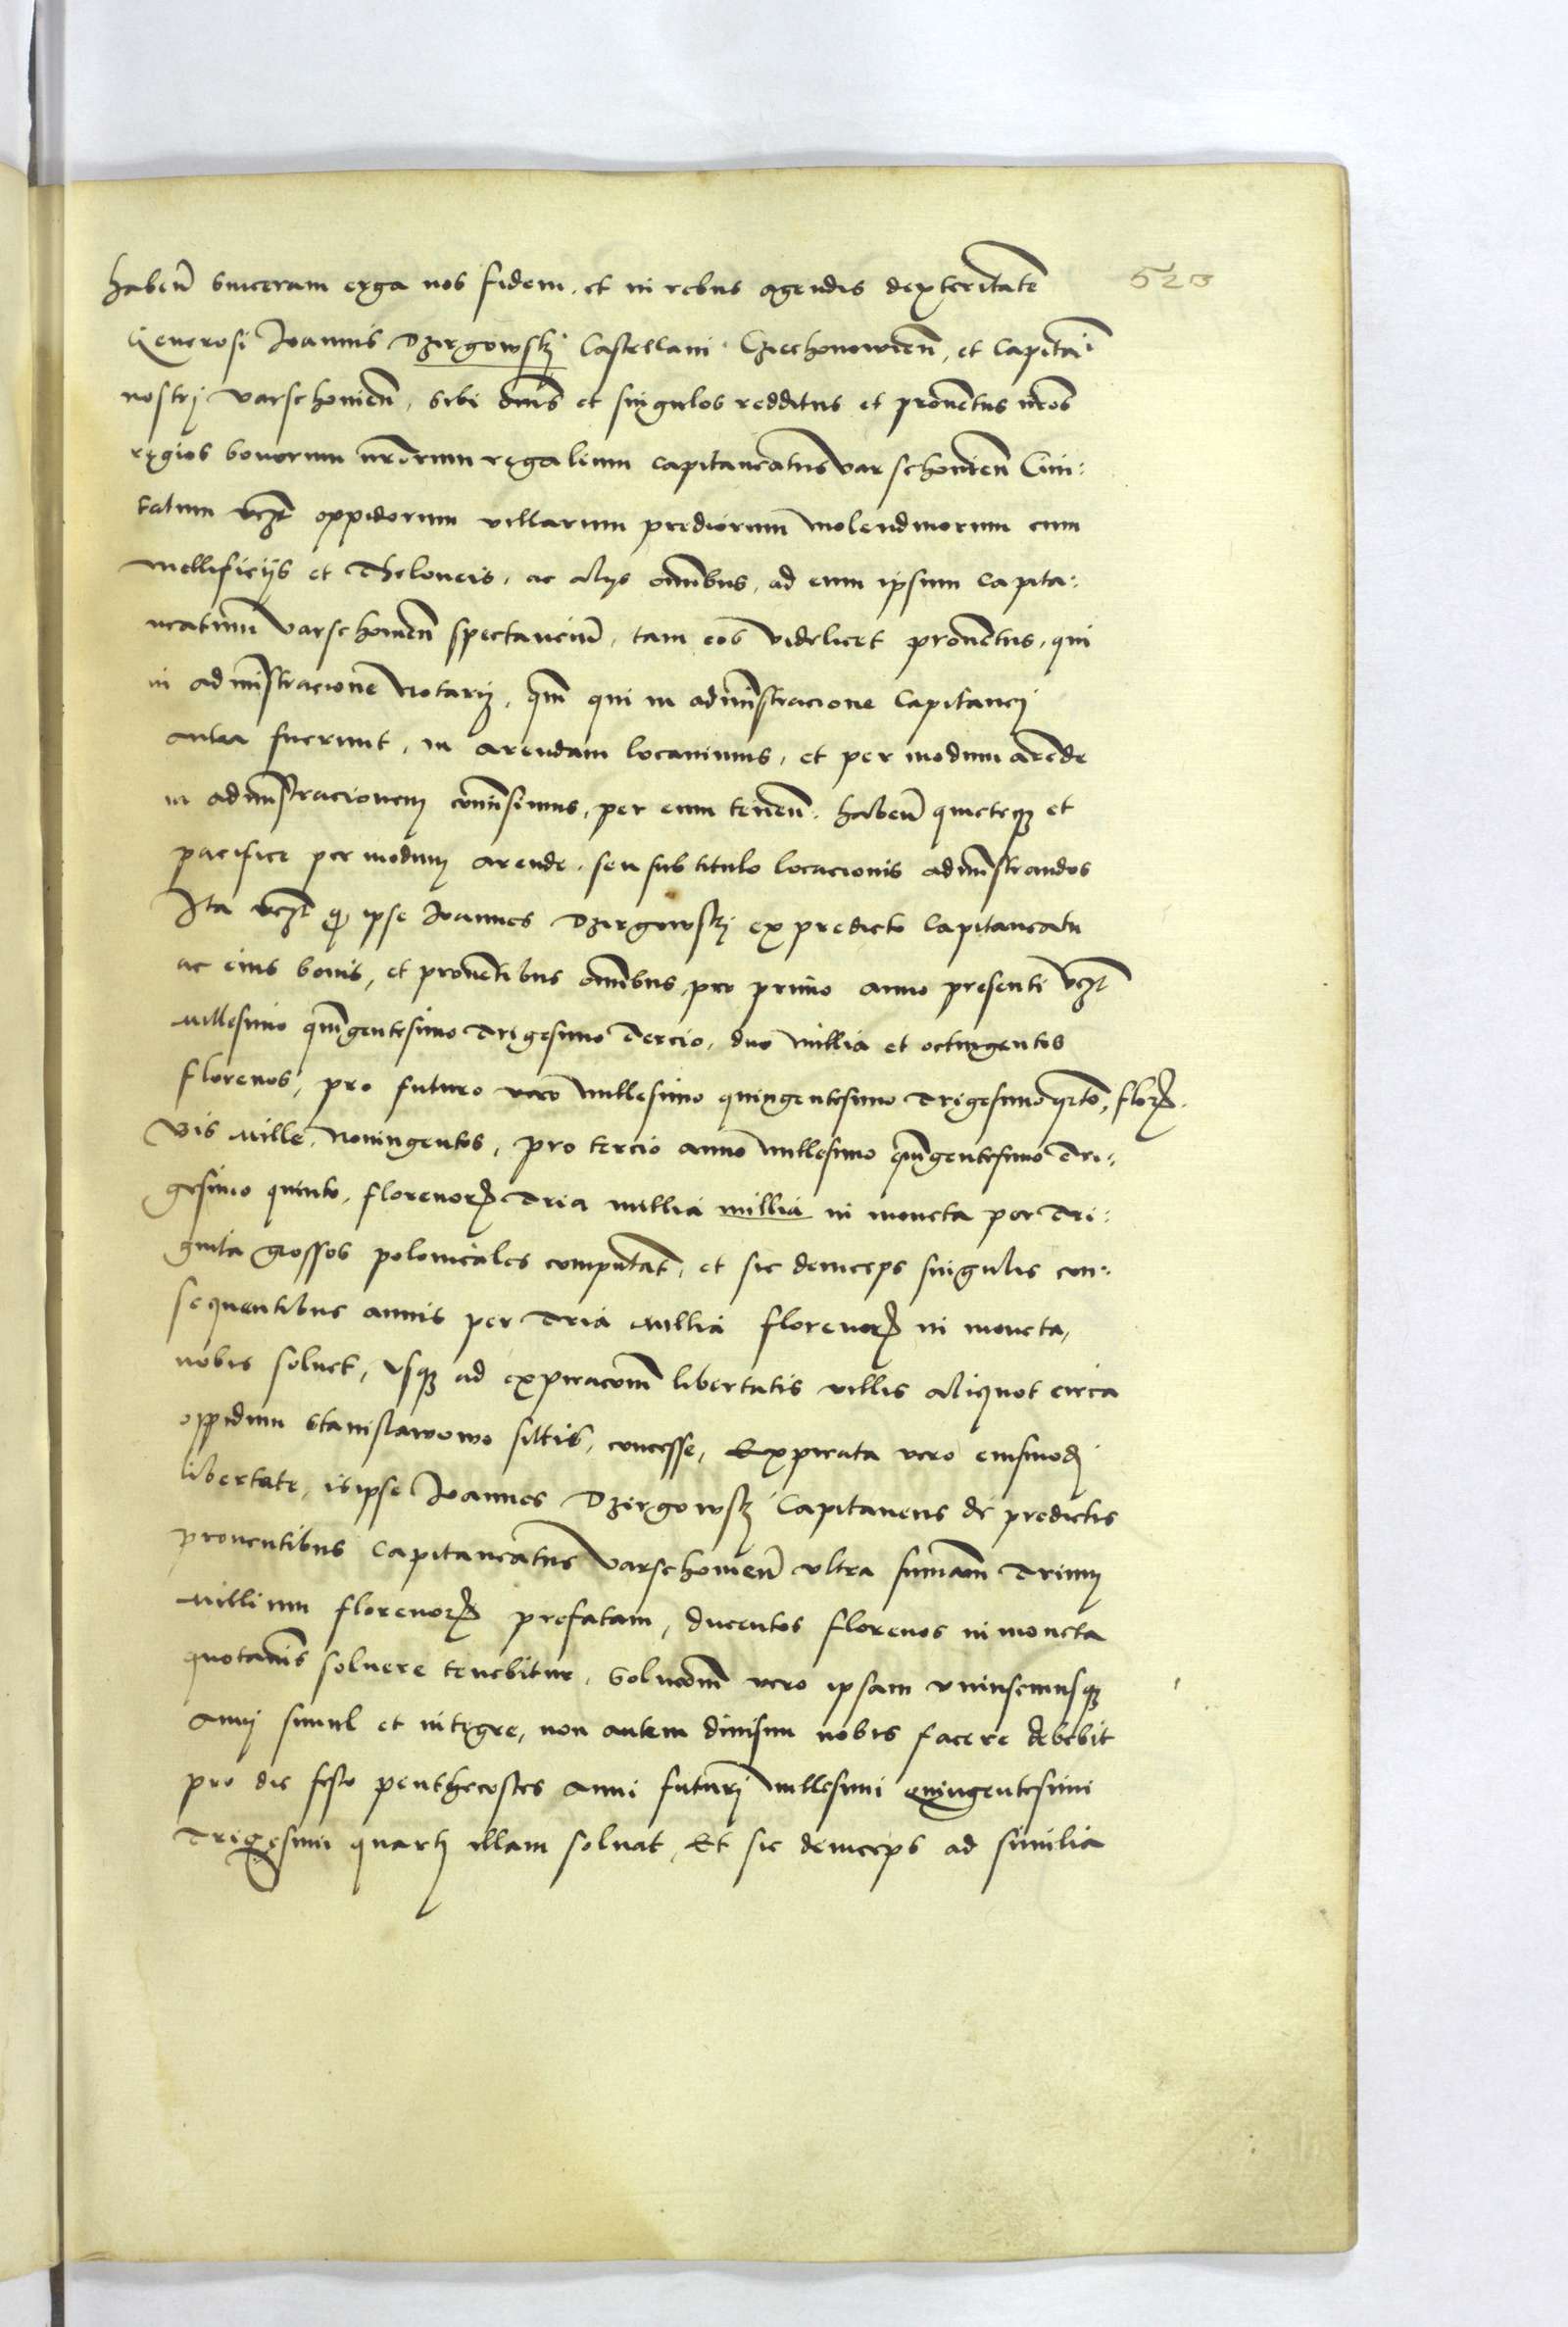 haben̄ sinceram erga nos fidem et in rebus agendis dexteritatē 520
Generosi Joannis Dzirgowskj Castellani Cziechonowien̄, et Capitāi
nostrj Varschouien̄, sibi om̄s et singulos redditus et prouentus nr̄os
regios bonorum nr̄orum regalium capitaneatus Varschouien̄ Ciui:
tatum vczt oppidorum villarum prediorum molendinorum cum
mellificijs et Theloneis, ac alijs om̄ibus, ad eum ipsum Capita:
neatum̄ Varschouien̄ spectanciū, tam eos videlicet prouentus, qui
in administracione Notarij, qm̄ qui in administracione Capitanej
antea fuerunt, in arendam locauimus, et per modum arēde
in administracionem com̄isimus, per eum tenen̄. haben̄ quieteqȝ et
pacifice per modum arende, seu sub titulo locacionis administrandos
Ita vczt qȝ ipse Joannes Dzirgowskj ex predicto Capitaneatu
ac eius bonis, et prouentibus om̄ibus, pro primo anno presenti vczt
Millesimo quīgentesimo Trigesimo Tercio, duo millia et octingentos
florenos, pro futuro vero millesimo quingentesimo Trigesimo qrto, florꝝ.
Bis Mille Noningentos, pro tercio anno millesimo quīgentesimo Tri:
gesimo quinto, florenorꝝ Tria millia millia in moneta per Tri:
ginta grossos polonicales computat̄, et sic deinceps singulis con:
sequentibus annis per Tria Millia florenorꝝ in moneta,
nobis soluet, vsqȝ ad expiracōm̄ libertatis villis aliquot circa
oppidum Stanislawowo sittis, concesse, Expirata vero eiusmodj
libertate, is ipse Joannes Dzirgowskj Capitaneus de predictis
prouentibus Capitaneatus Varschouien̄ vltra sum̄am Trium
Millium florenorꝝ prefatam, ducentos florenos in moneta
quotan̄is soluere tenebitur. Solucōm̄ vero ipsam vniuscuiusqȝ
Annj simul et integre, non autem diuisim nobis facere debebit
pro die festo penthecostes anni futurj millesimi quingentesimi
Trigesimi quartj illam soluat, Et sic deinceps ad similia